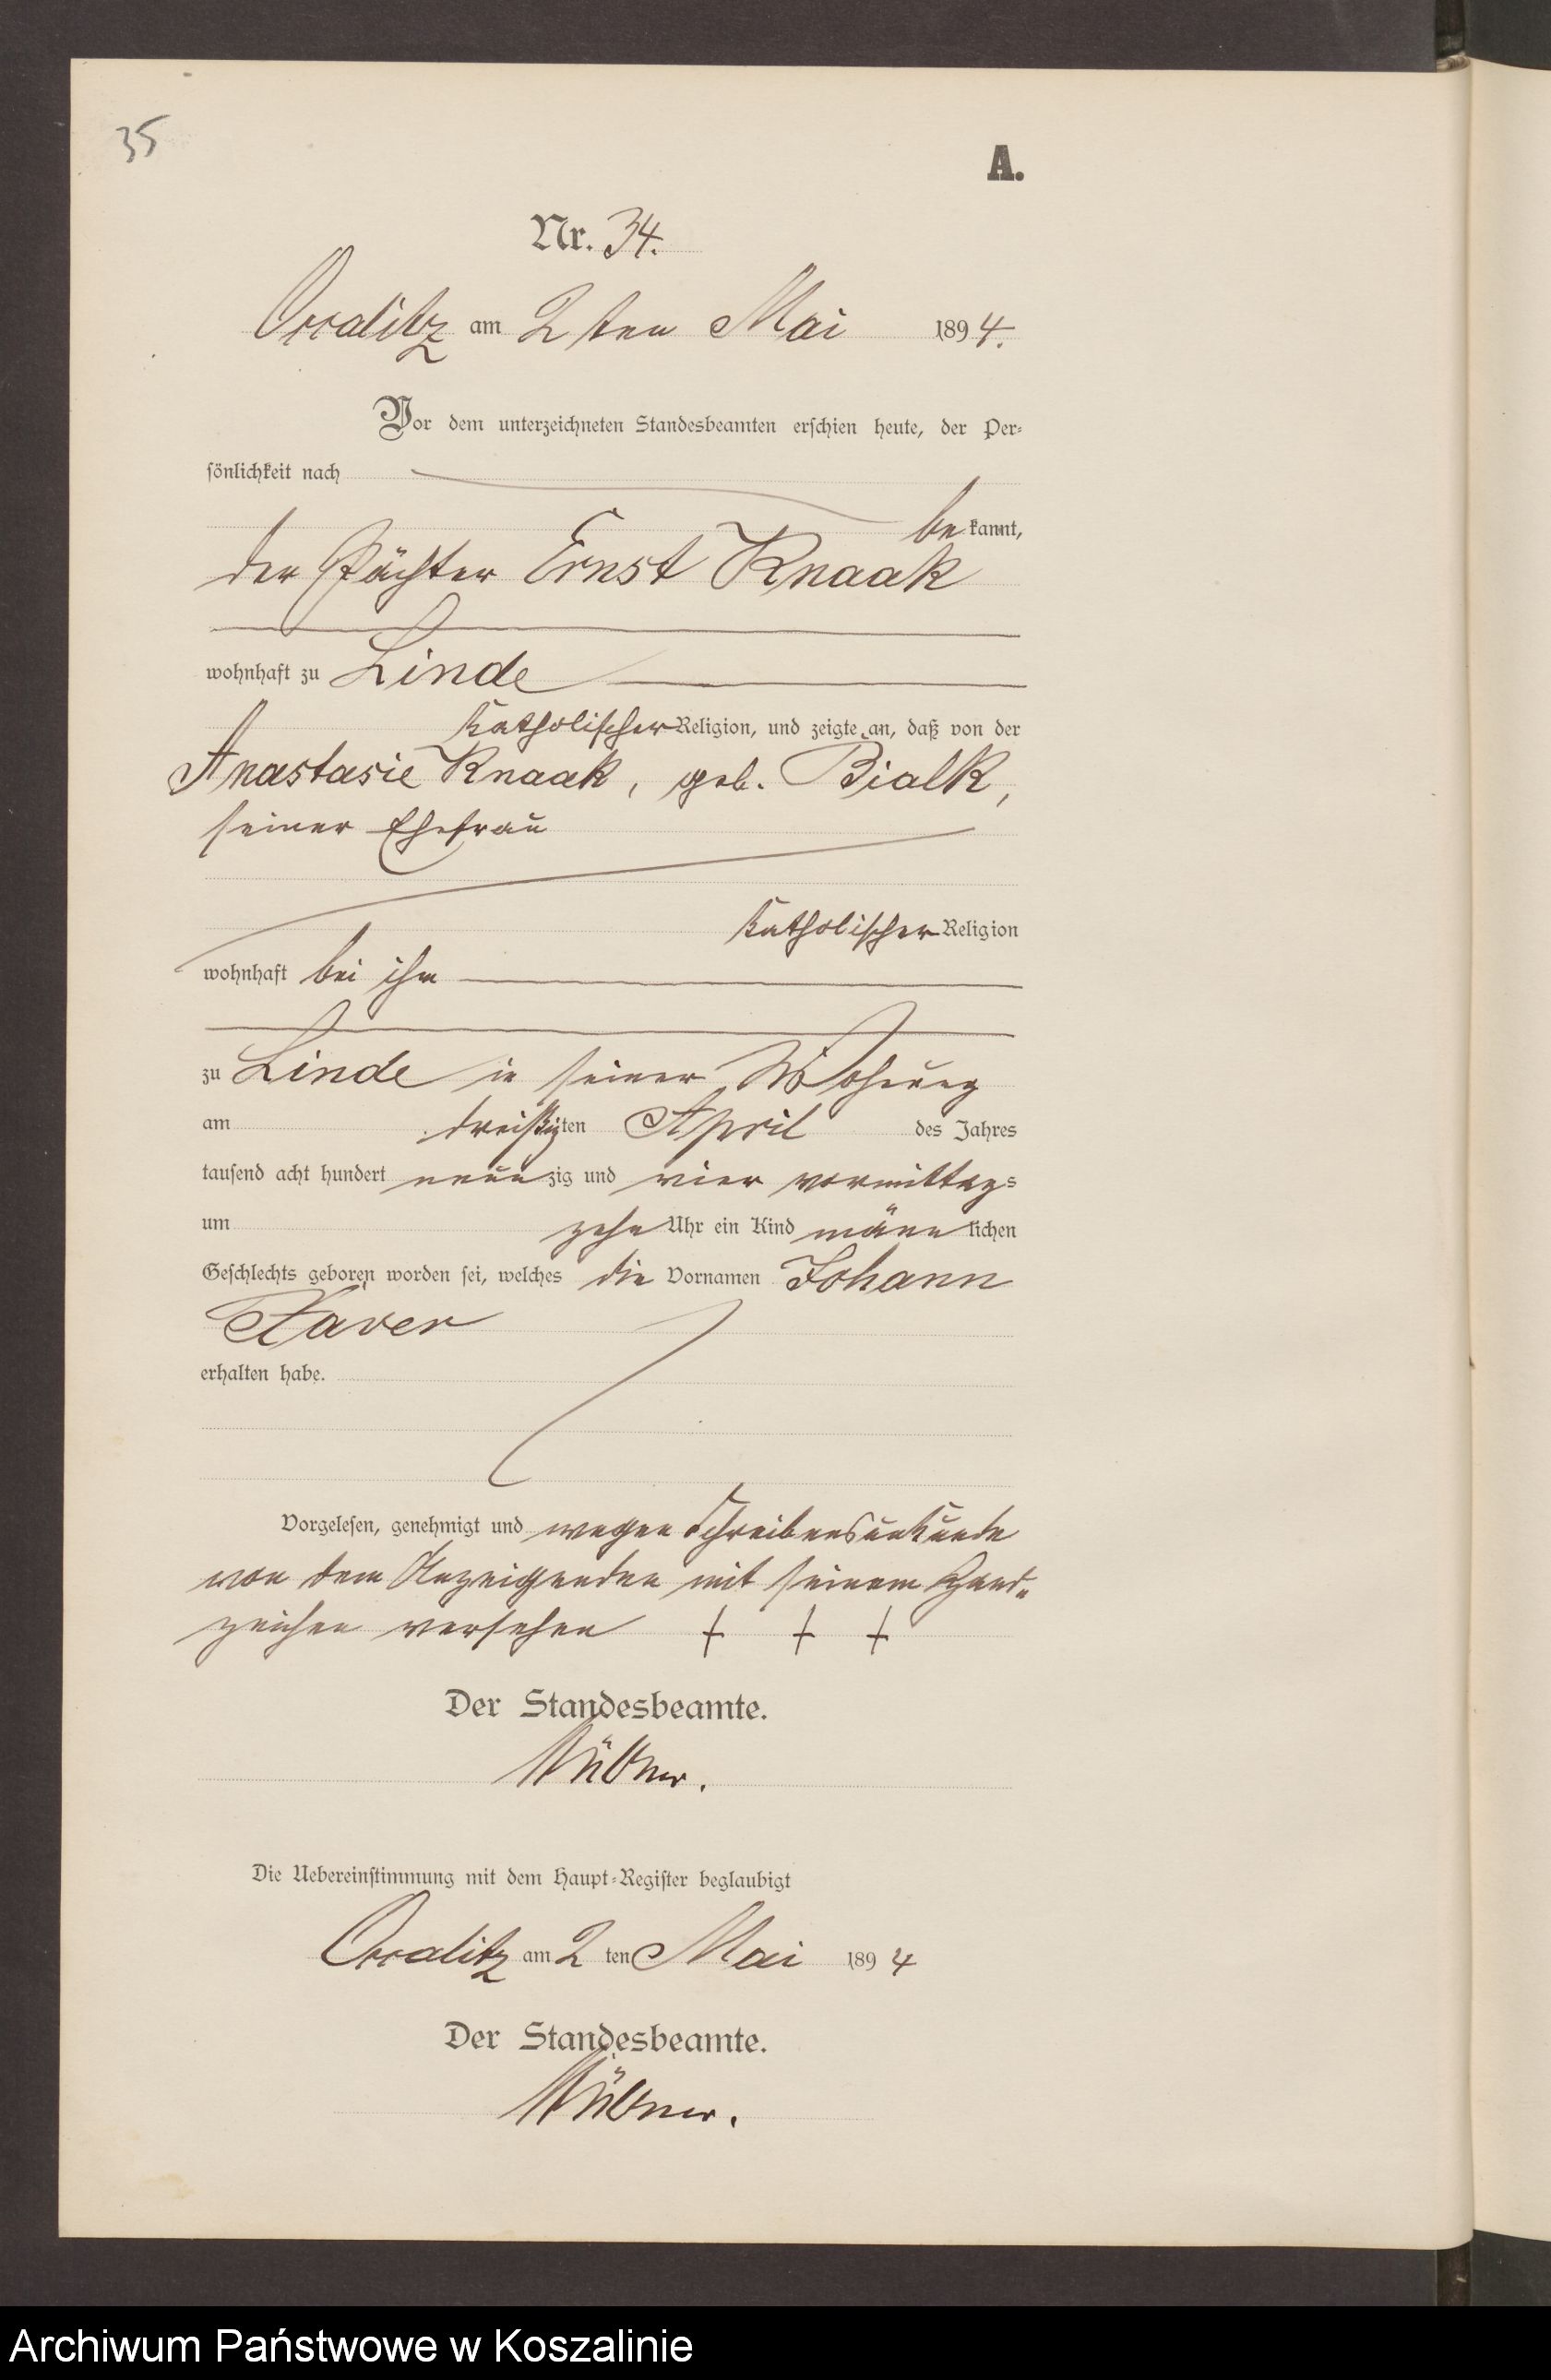 35
A.
Nr. 34.
am 2ten Mai 1894.
Vor dem unterzeichneten Standesbeamten erschien heute, der Per-
sönlichkeit nach
bekannt,
der Pächter Ernst Knaak
wohnhaft zu Linde
katholischer Religion, und zeigte an, daß von der
Anastasie Knaak, geb. Bialk,
seiner Ehefrau
katholischer Religion
wohnhaft bei ihm
zu Linde in seiner Wohnung
am dreißigten April des Jahres
tausend acht hundert neunzig und vier vormittags
um zehn Uhr ein Kind männlichen
Geschlechts geboren worden sei, welches die Vornamen Johann
Xaver
erhalten habe.
Vorgelesen, genehmigt und wegen Schreibensunkunde
von dem Anzeigenden mit seinem Hand-
zeichen versehen + + +
Der Standesbeamte.
Die Uebereinstimmung mit dem Haupt-Register beglaubigt
am 2ten Mai 1894
Der Standesbeamte.
Archiwum Państwowe w Koszalinie